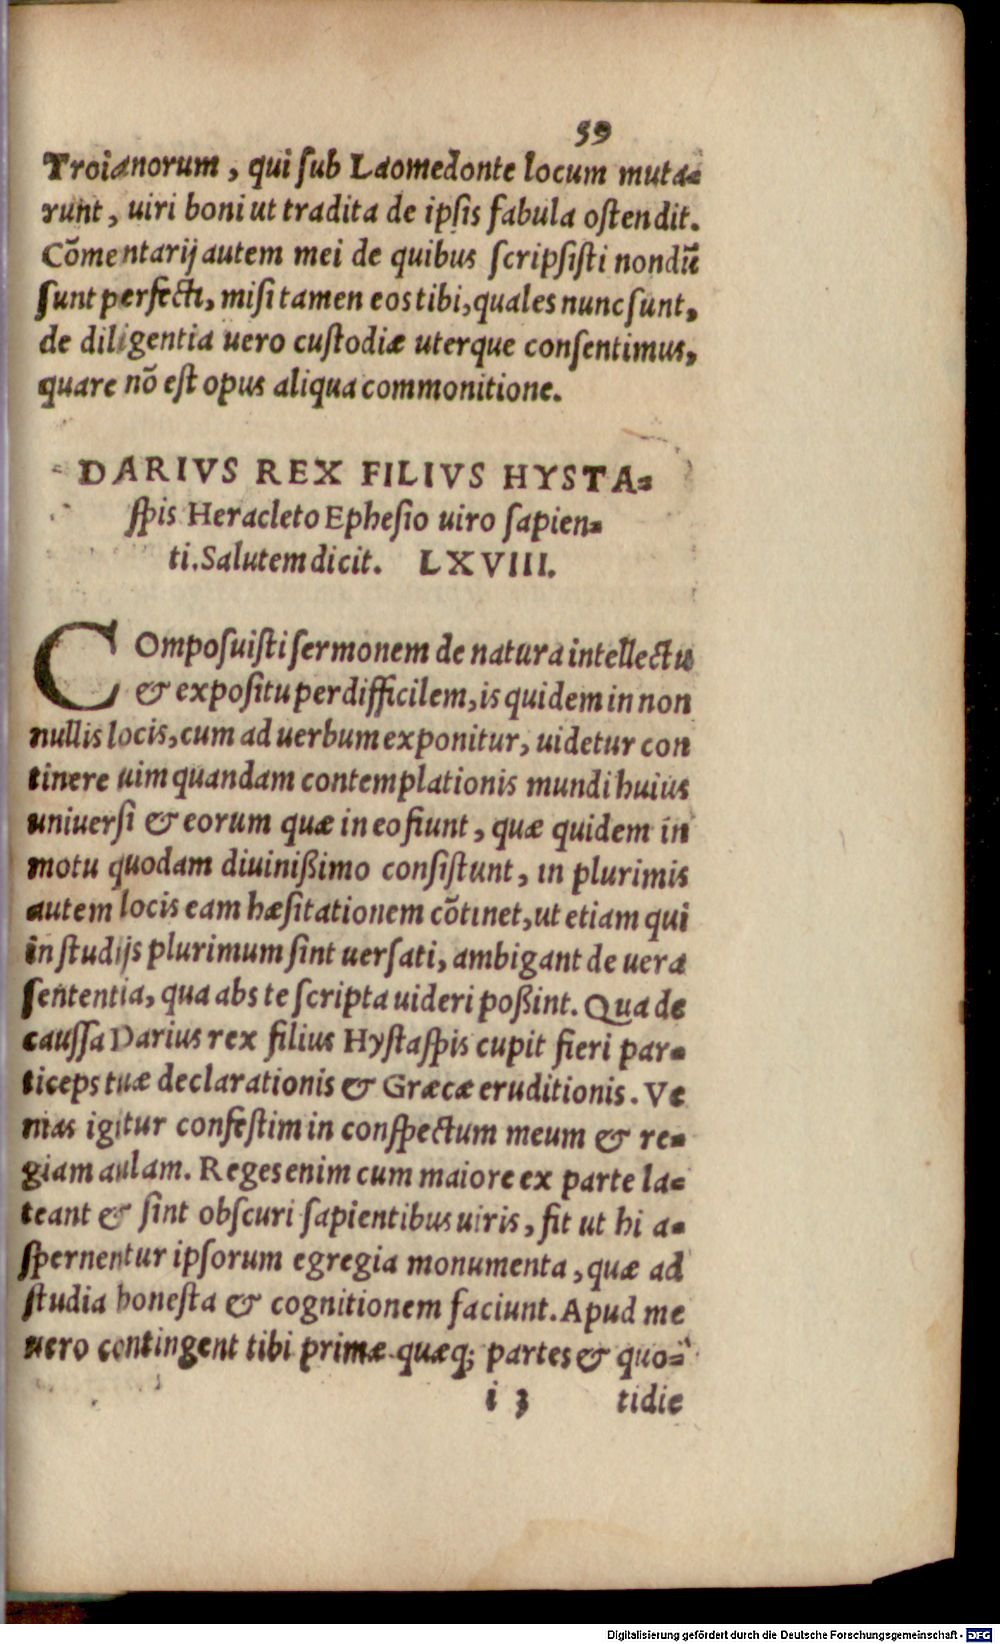 59
Troianorum, qui ſub Laomedonte locum muta=
runt, uiri boni ut tradita de ipſis fabula oſtendit.
Cõmentarij autem mei de quibus ſcripſiſti nondũ
ſunt perfecti, miſi tamen eos tibi, quales nunc ſunt,
de diligentia uero cuſtodiæ uterque conſentimus,
quare nõ eſt opus aliqua commonitione.
DARIVS REX FILIVS HYSTA=
ſpis Heracleto Epheſio uiro ſapien=
ti. Salutem dicit. LXVIII.
COmpoſuiſti ſermonem de natura intellectu
& expoſitu perdifficilem, is quidem in non
nullis locis, cum ad uerbum exponitur, uidetur con
tinere uim quandam contemplationis mundi huius
uniuerſi & eorum quæ in eo fiunt, quæ quidem in
motu quodam diuinißimo conſiſtunt, in plurimis
autem locis eam hæſitationem cõtinet, ut etiam qui
in ſtudijs plurimum ſint uerſati, ambigant de uera
ſententia, qua abs te ſcripta uideri poßint. Qua de
cauſſa Darius rex filius Hyſtaſpis cupit fieri par=
ticeps tuæ declarationis & Græcæ eruditionis. Ve
nias igitur confeſtim in conſpectum meum & re=
giam aulam. Reges enim cum maiore ex parte la=
teant & ſint obſcuri ſapientibus uiris, fit ut hi a=
ſpernentur ipſorum egregia monumenta, quæ ad
ſtudia honeſta & cognitionem faciunt. Apud me
uero contingent tibi primæ quæq; partes & quo=
i 3 tidie
Digitalisierung gefördert durch die Deutsche Forschungsgemeinschaft - DFG